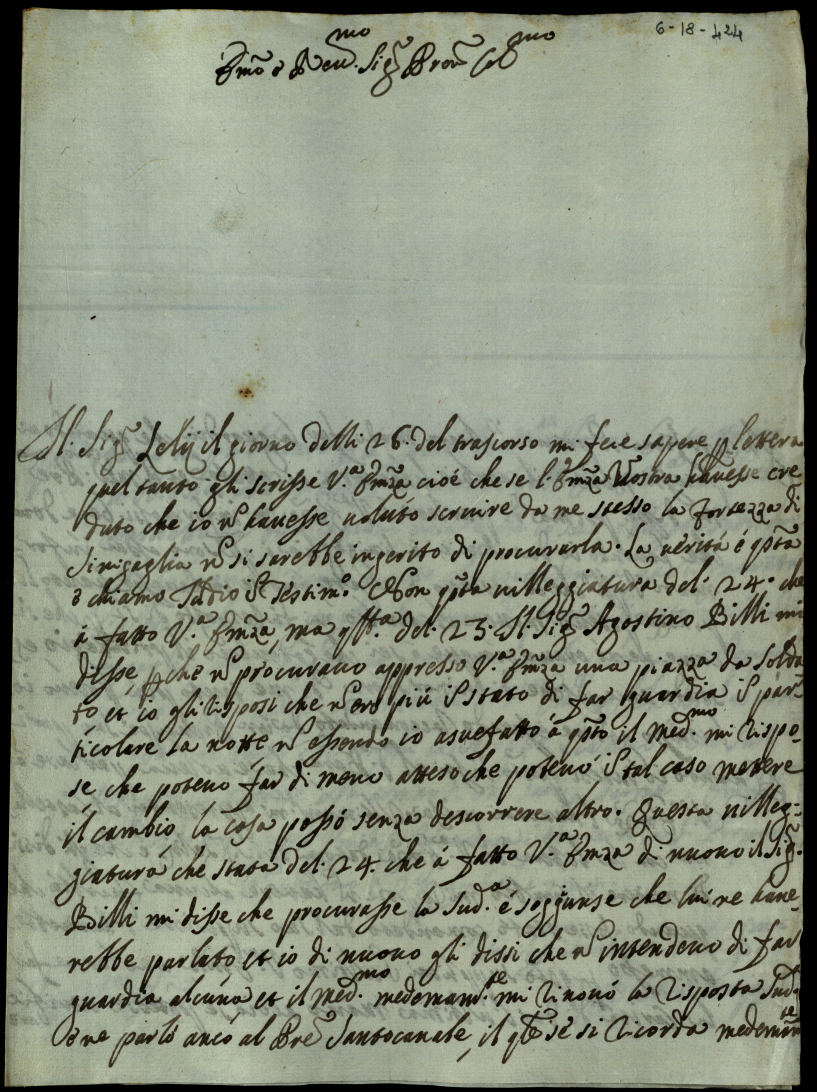 6-18-424
Em̃o e Reu.mo Sig.r Pron̄ Col.mo
Il Sig.r Lelij il giorno delli 26. del trascorso mi fece sapere p lettera
quel tanto gli scrisse V.a Em̃za cioé che se l'Em̃za Vostra hauesse cre
duto che io n̄ hauesse uoluto seruire da me stesso la fortezza di
Sinigaglia n̄ si sarebbe ingerito di procurarla. La uerità é q̄sta
e chiamo Iddio in Testim.o Non q̄sta uilleggiatura del 24. che
á fatto V.a Em̃za, ma q̄ll.a del 23. Il Sig.r Agostino Billi mi
disse p̄che n̄ procurauo appresso V.a Em̃za una piazza da solda
to et io gli risposi che n̄ ero piú in stato di far guardia in par-
ticolare la notte n̄ essendo io asuefatto á q̄sto il med.mo mi rispo-
se che poteuo far di meno atteso che poteuo in tal caso mettere
il cambio, la cosa passó senza descorrere altro. Questa uilleg-
giatura che stata del 24. che á fatto V.a Em̃za di nuouo il Sig.r
Billi mi disse che procurasse la sud.a é soggiunse che lui ne haue-
rebbe parlato et io di nuouo gli dissi che n̄ intendeuo di far
guardia alcuna et il med.mo medemam.te mi rinouó la risposta sud.a
e ne parló anco al Pre Santocanale, il q̄le se si ricorda medemam.te